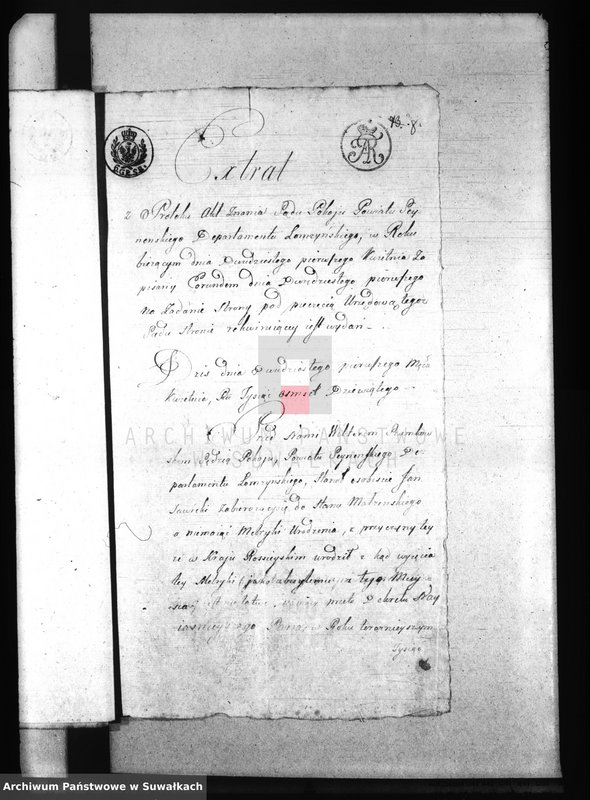 Extrat
z Protokułu Akt Znania Sądu Pokoju Powiatu Sey-
neńskiego Departamentu Łomzyńskiego, w Roku
bieżącym dnia Dwudziestego pierwszego Kwietnia Za
pisany dnia Dwudziestego pierwszego
na żądanie Strony pod pieczęcią Urzędową tegoż
Sądu Stronie rekwirującey iest wydan
Dzis dnia Dwudziestego pierwszego Mca
Kwietnia, Rku Tysiąc osmset Dziewiątego
Przed Nami Wiktorem
Sędzią Pokoju, Powiatu Seynenskiego De-
partamentu Łomzyńskiego, Stawał osobiscie Jan
Sawicki zabierający się do Stanu Małzenskiego
a niemaiąc Metryki Urodzenia, z przyczyny tey
że w Kraju Rossyiskim urodził z kąd wyięcia
tey Metryki
Pana, w Roku teraznieyszym
Tysiąc
ARCHIWUM PAŃSTWOWE
W SUWAŁKACH
Archiwum Państwowe w Suwałkach